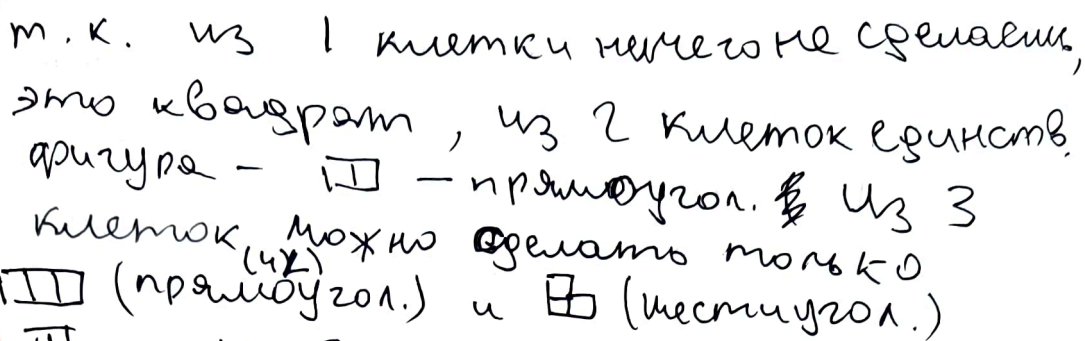 т.к. из 1 клетки ничего не сделаешь,
это квадрат, из 2 клеток единств.
фигура – – прямоугол. Из 3
клеток можно сделать только
(4х)
(прямоугол.) и (шестиугол.)